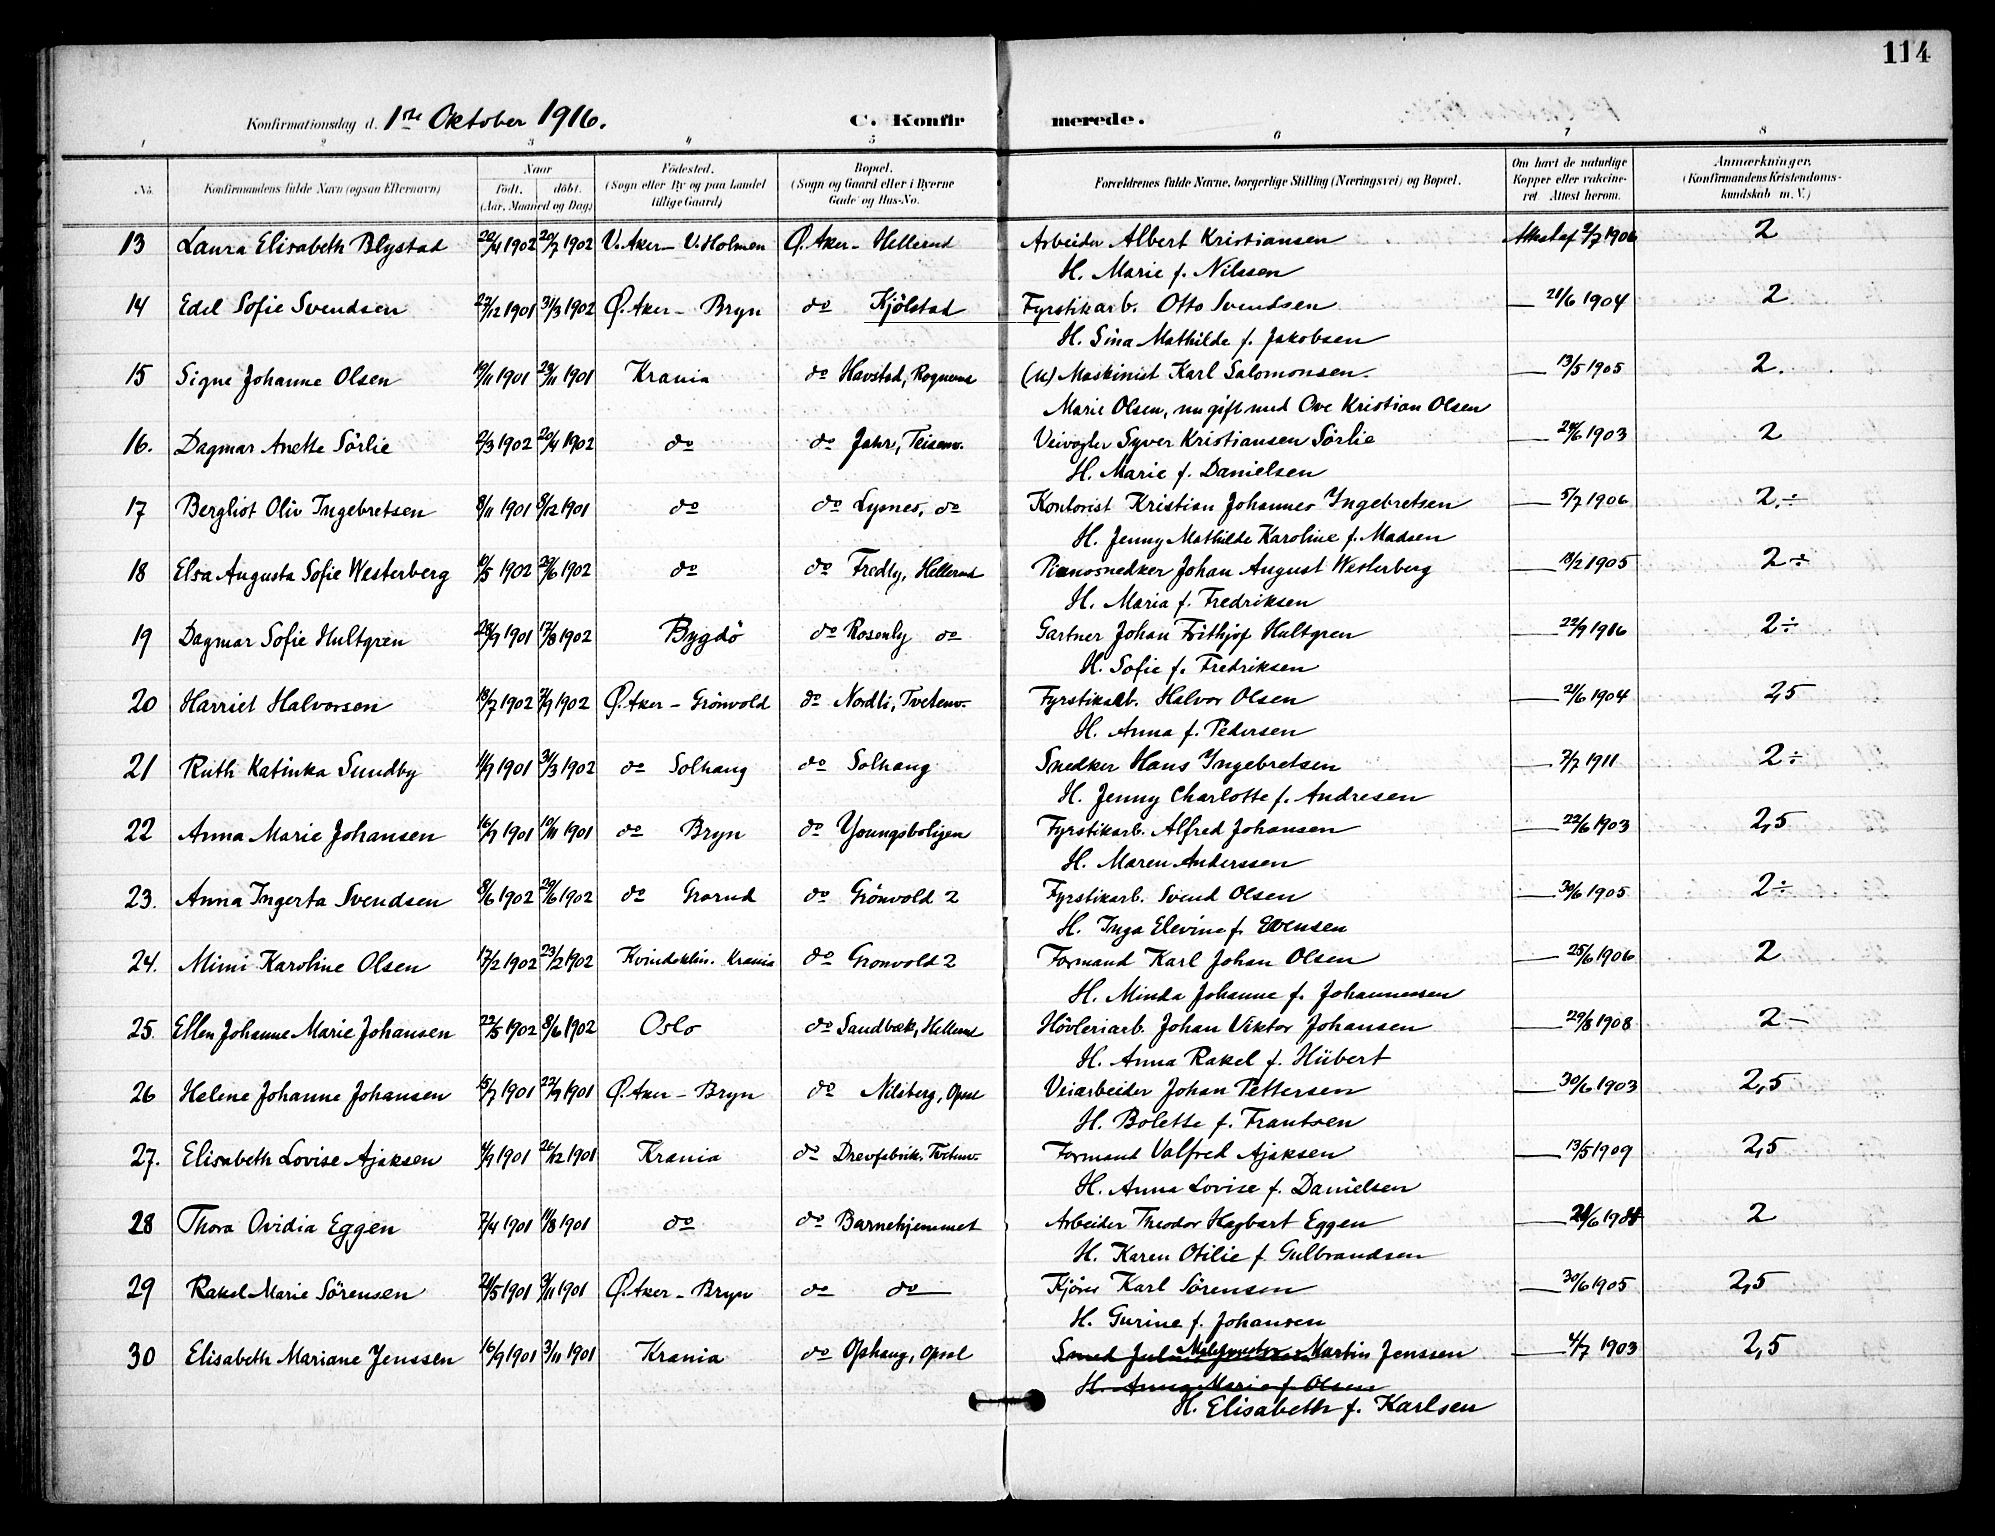 114
Konfirmationsdag d. 1ste Oktober 1916. C. Konfirmerede.
1 2 3 4 5 6 7 8
No. Konfirmandens fulde Navn (ogsaa Efternavn) Naar födt. döbt. (Aar, Maaned og Dag) Födested. (Sogn eller By og paa Landet tillige Gaard) Bopæl. (Sogn og Gaard eller i Byerne Gade og Hus-No. Forældrenes fulde Navne, borgerlige Stilling (Næringsvei) og Bopæl. Om havt de naturlige Kopper eller vaccineret Attest herom. Anmærkninger, (Konfirmandens Kristendomskundskab m. V.)
13 Laura Elisabeth Blystad 22/4 1902 20/7 1902 V. Aker - V. Holmen Ø. Aker - Hellerud Arbeider Albert Kristiansen Attest af 2/7 1906 2
H. Marie f. Nilssen
14 Edel Sofie Svendsen 27/12 1901 31/3 1902 Ø. Aker - Bryn do Kjölstad Fyrstikarb. Otto Svendsen — 21/6 1904 2
H. Sina Mathilde f. Jakobsen
15 Signe Johanne Olsen 19/11 1901 29/11 1901 Krania do Havstad, Rognerud (u) Maskinist Karl Salomonsen. — 13/5 1905 2.
Marie Olsen, nu gift med Ove Kristian Olsen
16. Dagmar Anette Sörlie 2/3 1902 20/4 1902 do do Jahr, Teisenv. Veivogter Syver Kristiansen Sörlie — 24/6 1903 2
H. Marie f. Danielsen
17 Bergliot Oliv Ingebretsen 8/11 1901 8/12 1901 do do Lysnes, do Kontorist Kristian Johannes Ingebretsen — 5/7 1906 2.÷
H. Jenny Mathilde Karoline f. Madsen
18 Elsa Augusta Sofie Westerberg 10/5 1902 29/6 1902 do do Fredly, Hellerud Pianosnedker Johan August Westerberg — 13/2 1905 2÷
H. Maria f. Fredriksen
19 Dagmar Sofie Hultgren 28/9 1901 17/8 1902 Bygdö do Rosenly do Gartner Johan Frithjof Hultgren — 22/9 1916 2÷
H. Sofie f. Fredriksen
20 Harriet Halvorsen 18/7 1902 7/9 1902 Ø. Aker - Grönvold do Nordli, Tvetenv. Fyrstikarb. Halvor Olsen — 21/6 1904 2,5
H. Anna f. Pedersen
21 Ruth Katinka Sundby 11/9 1901 31/3 1902 do Solhaug do Solhaug Snedker Hans Ingebretsen — 7/7 1911 2÷
H. Jenny Charlotte f. Andresen
22 Anna Marie Johansen 16/9 1901 10/11 1901 do Bryn do Youngsboligen Fyrstikarb. Alfred Johansen — 22/6 1903 2,5
H. Maren Anderssen
23. Anna Ingerta Svendsen 8/6 1902 29/6 1902 do Grorud do Grönvold 2 Fyrstikarb. Svend Olsen — 30/6 1905 2÷
H. Inga Elevine f. Evensen
24. Mimi Karoline Olsen 17/2 1902 23/2 1902 Kvindeklin. Krania do Grönvold 2 Formand Karl Johan Olsen — 25/6 1906 2
H. Minda Johanne f. Johannessen
25. Ellen Johanne Marie Johansen 22/5 1902 8/6 1902 Oslo do Sandbæk, Hellerud Hövleriarb. Johan Viktor Johansen — 29/8 1908 2-
H. Anna Rakel f. Hübert
26 Helene Johanne Johansen 15/7 1901 22/9 1901 Ø. Aker - Bryn do Nilsberg, Opsal Veiarbeider Johan Pettersen — 30/6 1903 2,5
H. Bolette f. Frantsen
27. Elisabeth Lovise Ajaksen 4/9 1901 26/12 1901 Krania do Drevfabrik. Tvetenv. Formand Valfred Ajaksen — 13/5 1909 2,5
H. Anna Lovise f. Danielsen
28 Thora Ovidia Eggen 7/4 1901 11/8 1901 do do Barnehjemmet Arbeider Theodor Hagbart Eggen 2
H. Karen Otilie f. Gulbrandsen
29 Rakel Marie Sörensen 24/5 1901 3/11 1901 Ø. Aker - Bryn do do Kjörer Karl Sörensen — 30/6 1905 2,5
H. Gurine f. Johansen
30 Elisabeth Mariane Jenssen 16/9 1901 3/11 1901 Krania do Ophaug, Opsal Smed Martin Jenssen — 4/7 1903 2,5
H. Anna Marie f. Olsen
H. Elisabeth f. Karlsen